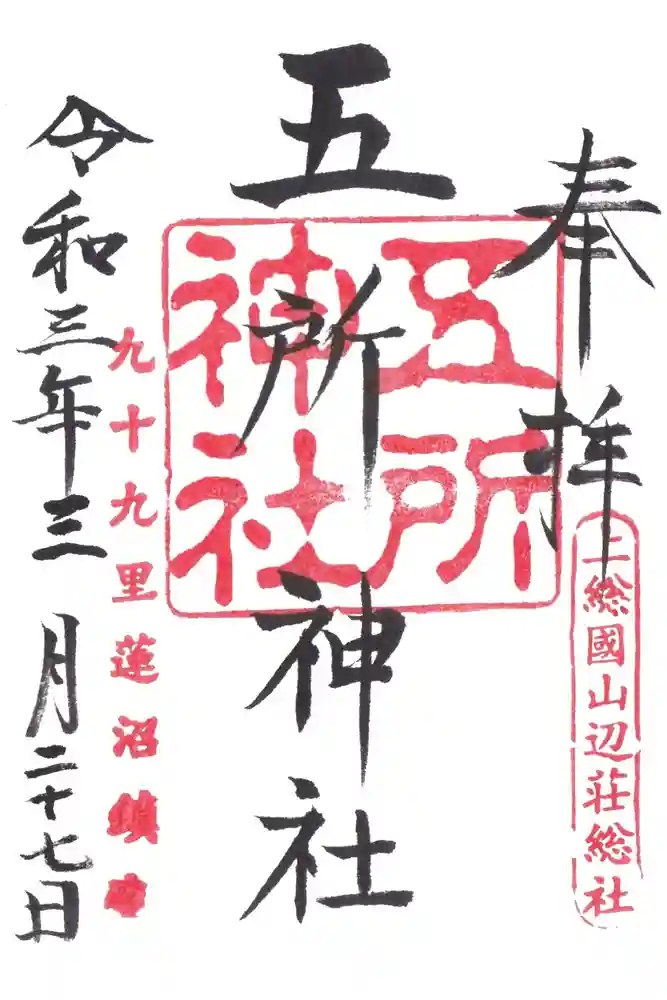 奉拝
上総國山辺荘総社
五所神社
五所神社
九十九里蓮沼鎮守
令和三年三月二十七日